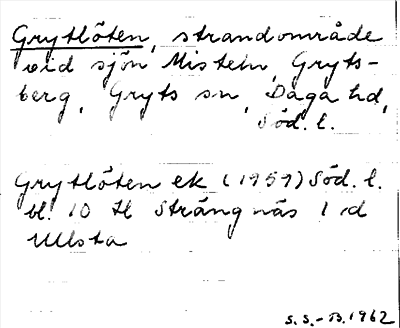 Grytlöten, strandområde
vid sjön Misteln, Gryts-
berg, Gryts sn, Daga hd,
Söd. l.
Grytlöten ek (1959) Söd. l.
bl. 10 tl Strängnäs 1 d
Ullsta
S.S.-B. 1962